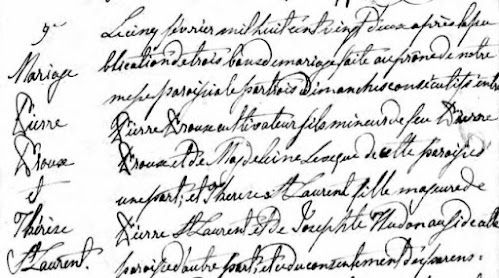 9e
Mariage
Pierre
Proux
et
Thérèse
St Laurent.
Le cinq février mil huit cent vingt deux après la pu
blication de trois bans de mariage faite au prône de notre
messe paroissiale par trois Dimanches consécutifs entre
Pierre Proux cultivateur fils mineur de feu Pierre
Proux et de Magdeleine Leveque de cette paroisse d
une part; et Therese St Laurent fille majeure de
Pierre St Laurent et de Josephte Hudon aussi de cette
paroisse d'autre part; et du consentement des parens: